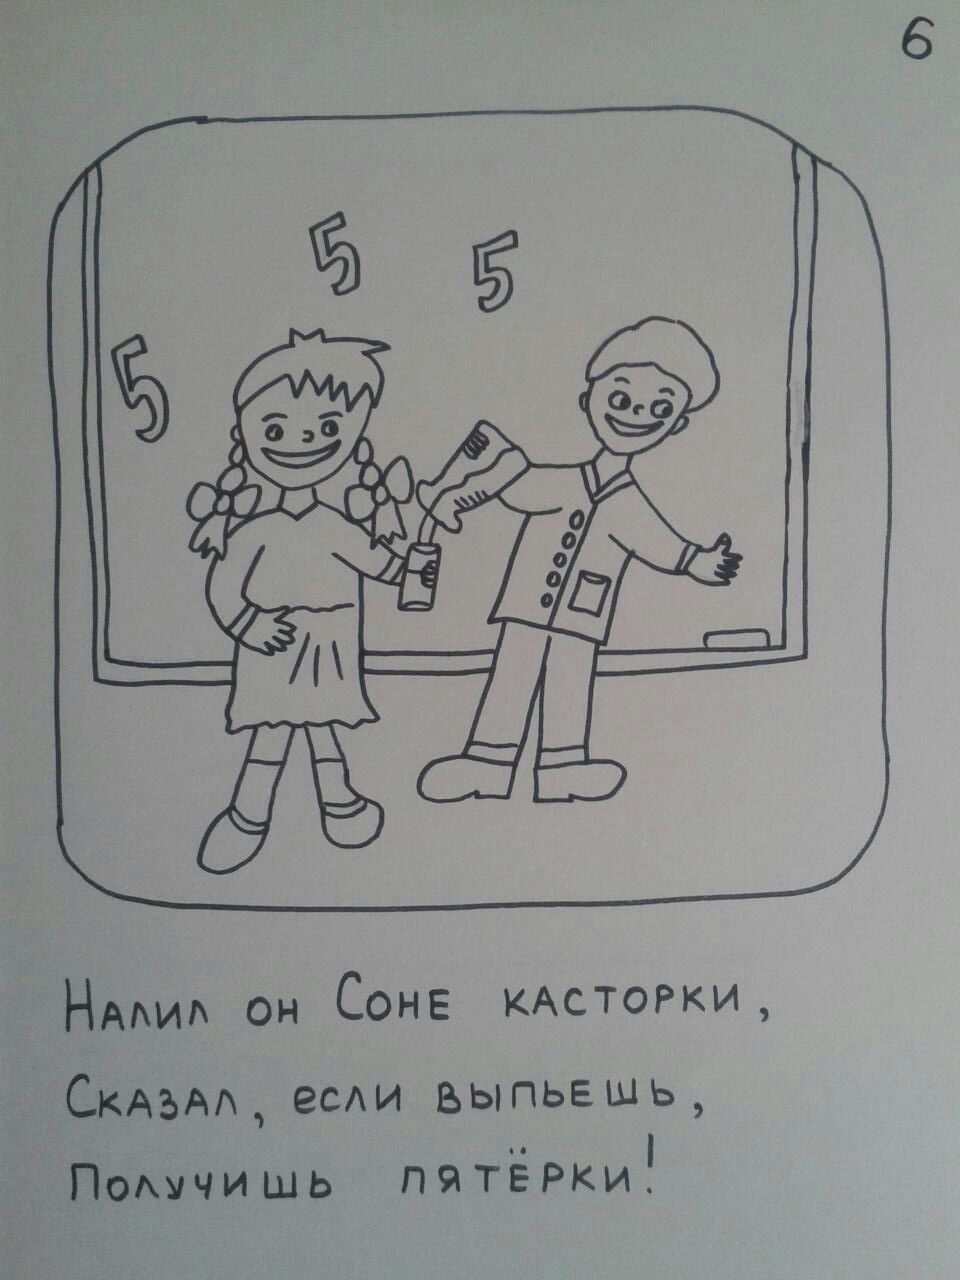 6
5 5
5
Налил он Соне касторки,
Сказал, если выпьешь,
Получишь пятёрки!